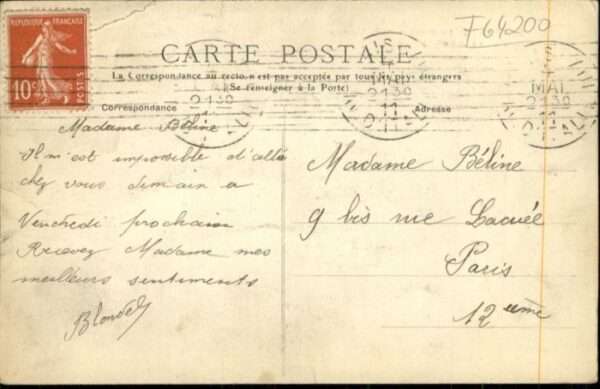 F64200
REPUBLIQUE FRANÇAISE
10c
POSTES
CARTE POSTALE
La Correspondance au recto, n'est pas acceptée par tous les pays étrangers
(Se renseigner à la Poste)
Correspondance
Adresse
MAI
2130
11
MAI
2130
11
Madame Béline
Il m'est impossible d'allé
chez vous demain a
Vendredi prochain
Recevez Madame mes
meilleurs sentiments
Blondel
Madame Béline
9 bis rue Lacuée
Paris
12 ème